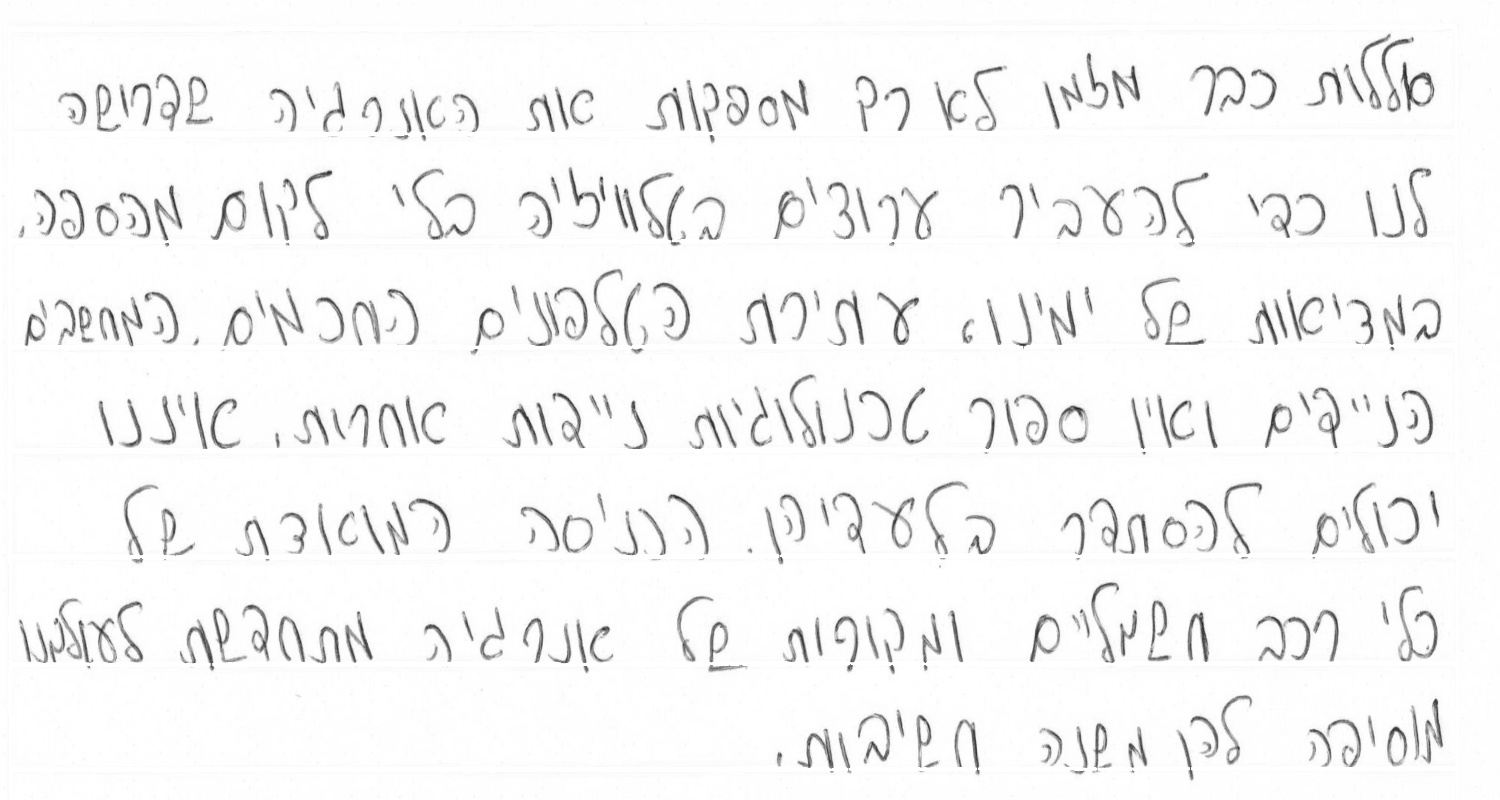 סוללות כבר מזמן לא רק מספקות את האנרגיה שדרושה
לנו כדי להעביר ערוצים בטלוויזיה בלי לקום מהספה.
במציאות של ימינו, עתירת הטלפונים החכמים, המחשבים
הניידים ואין ספור טכנולוגיות ניידות אחרות, איננו
יכולים להסתדר בלעדיהן. הכניסה המואצת של
כלי רכב חשמליים ומקורות של אנרגיה מתחדשת לעולמנו
מוסיפה להן משנה חשיבות.